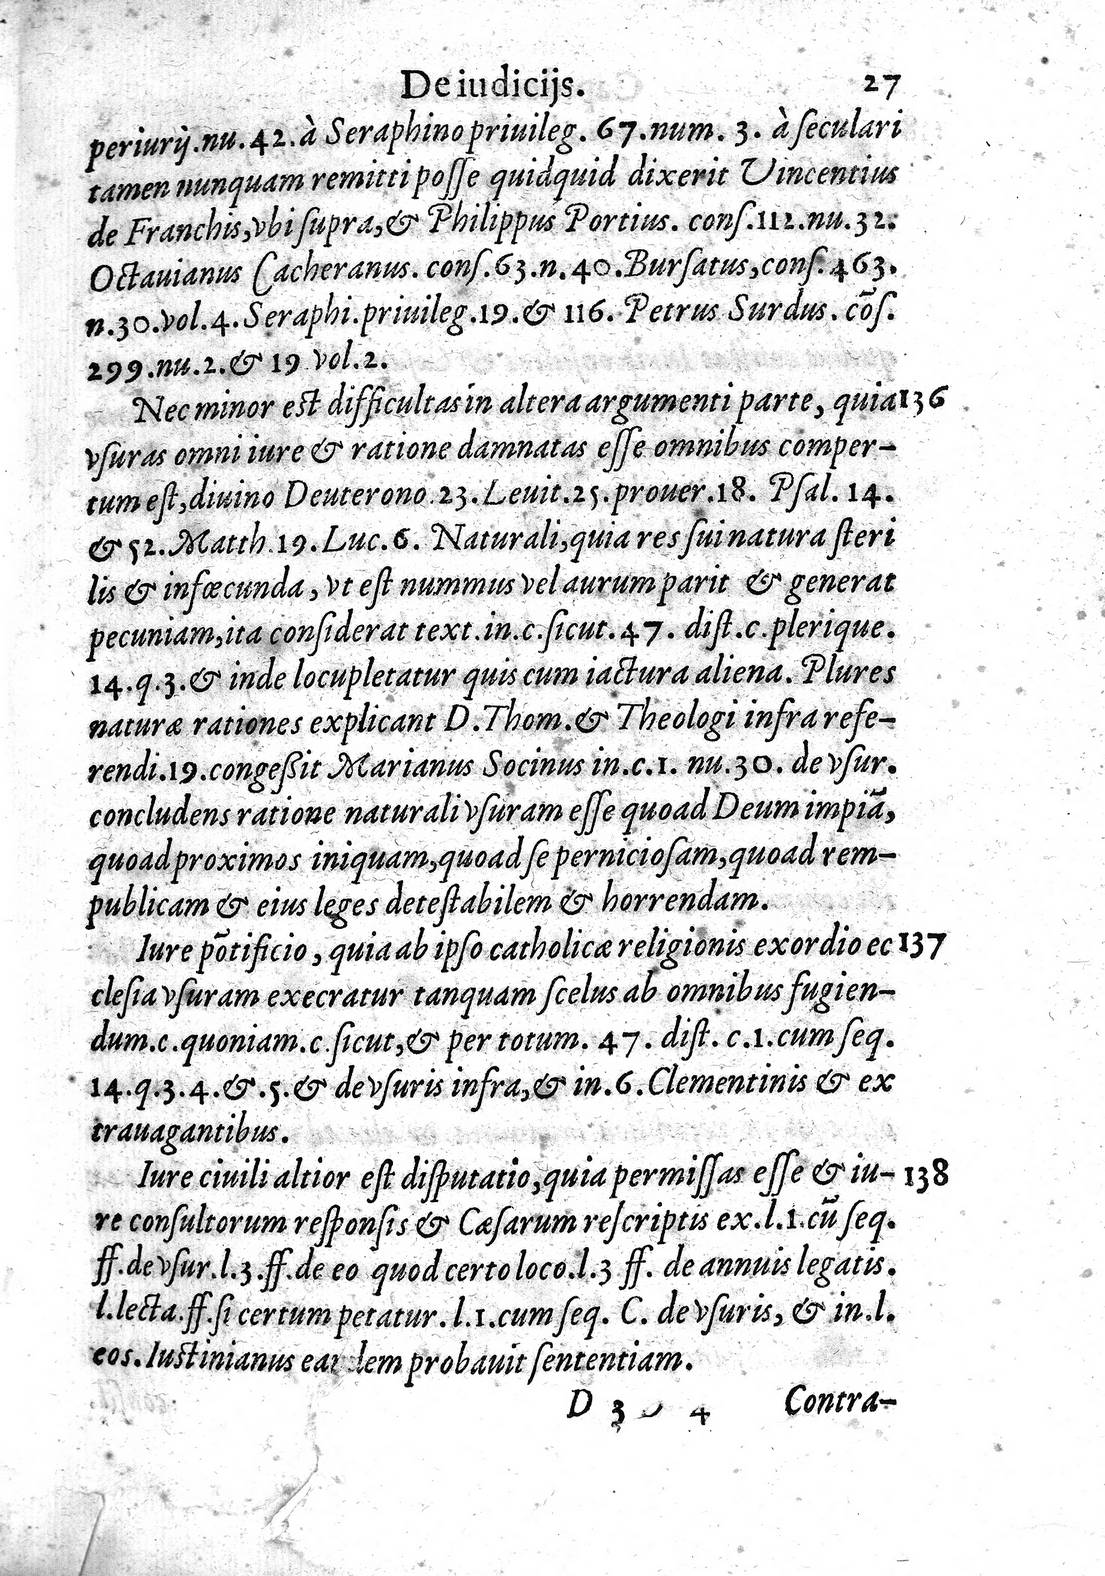 De iudicijs. 27
periurij.nu.42.à Seraphino priuileg. 67.num. 3. à ſeculari
tamen nunquam remitti poſſe quidquid dixerit Vincentius
de Franchis,vbi ſupra,& Philippus Portius. conſ.112.nu.32.
Octauianus Cacheranus. conſ.63.n.40.Burſatus,conſ.463.
n.30.vol.4.Seraphi.priuileg.19.& 116. Petrus Surdus. cõſ.
299.nu.2.& 19 vol.2.
Nec minor est difficultas in altera argumenti parte, quia 136
vſuras omni iure & ratione damnatas eſſe omnibus comper-
tum eſt,diuino Deuterono.23.Leuit.25.prouer.18. Pſal. 14.
& 52.Matth.19.Luc.6. Naturali,quia res ſui natura ſteri
lis & infœcunda, vt eſt nummus vel aurum parit & generat
pecuniam,ita conſiderat text.in.c.ſicut.47. diſt.c.plerique.
14.q.3.& inde locupletatur quis cum iactura aliena. Plures
naturæ rationes explicant D.Thom.& Theologi infra refe-
rendi.19.congeßit Marianus Socinus in.c.1. nu.30. de vſur.
concludens ratione naturali vſuram eſſe quoad Deum impiã,
quoad proximos iniquam,quoad ſe pernicioſam,quoad rem-
publicam & eius leges deteſtabilem & horrendam.
Iure põtificio, quia ab ipſo catholicæ religionis exordio ec 137
cleſia vſuram execratur tanquam ſcelus ab omnibus fugien-
dum.c.quoniam.c.ſicut,& per totum. 47. diſt. c.1.cum ſeq.
14.q.3.4.&.5.& de vſuris infra,& in.6.Clementinis & ex
trauagantibus.
Iure ciuili altior eſt diſputatio,quia permiſſas eſſe & iu- 138
re conſultorum reſponſis & Cæſarum reſcriptis ex.l.1.cũ ſeq.
ff.de vſur.l.3.ff.de eo quod certo loco.l.3 ff. de annuis legatis.
l.lecta.ff.ſi certum petatur.l.1.cum ſeq. C. de vſuris, & in.l.
eos.Iustinianus eandem probauit ſententiam.
D 3 4 Contra-